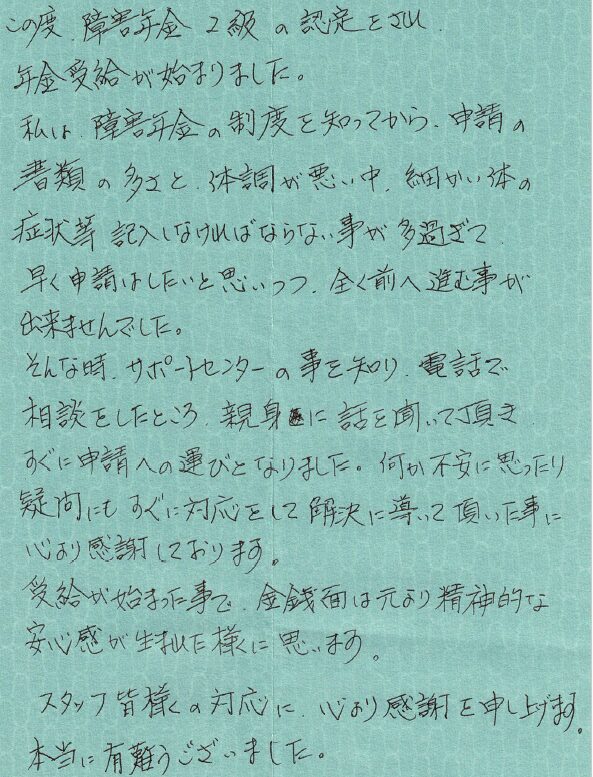 この度、障害年金2級の認定をされ
年金受給が始まりました。
私は、障害年金の制度を知ってから、申請の
書類の多さと、体調が悪い中、細かい体の
症状等 記入しなければならない事が多過ぎて、
早く申請はしたいと思いつつ、全く前へ進む事が
出来ませんでした。
そんな時、サポートセンターの事を知り、電話で
相談をしたところ、親身に話を聞いて頂き、
すぐに申請への運びとなりました。何か不安に思ったり
疑問にもすぐに対応をして解決に導いて頂いた事に
心より感謝しております。
受給が始まった事で、金銭面は元より精神的な
安心感が生まれた様に思います。
スタッフ皆様の対応に、心より感謝を申し上げます。
本当に有難うございました。